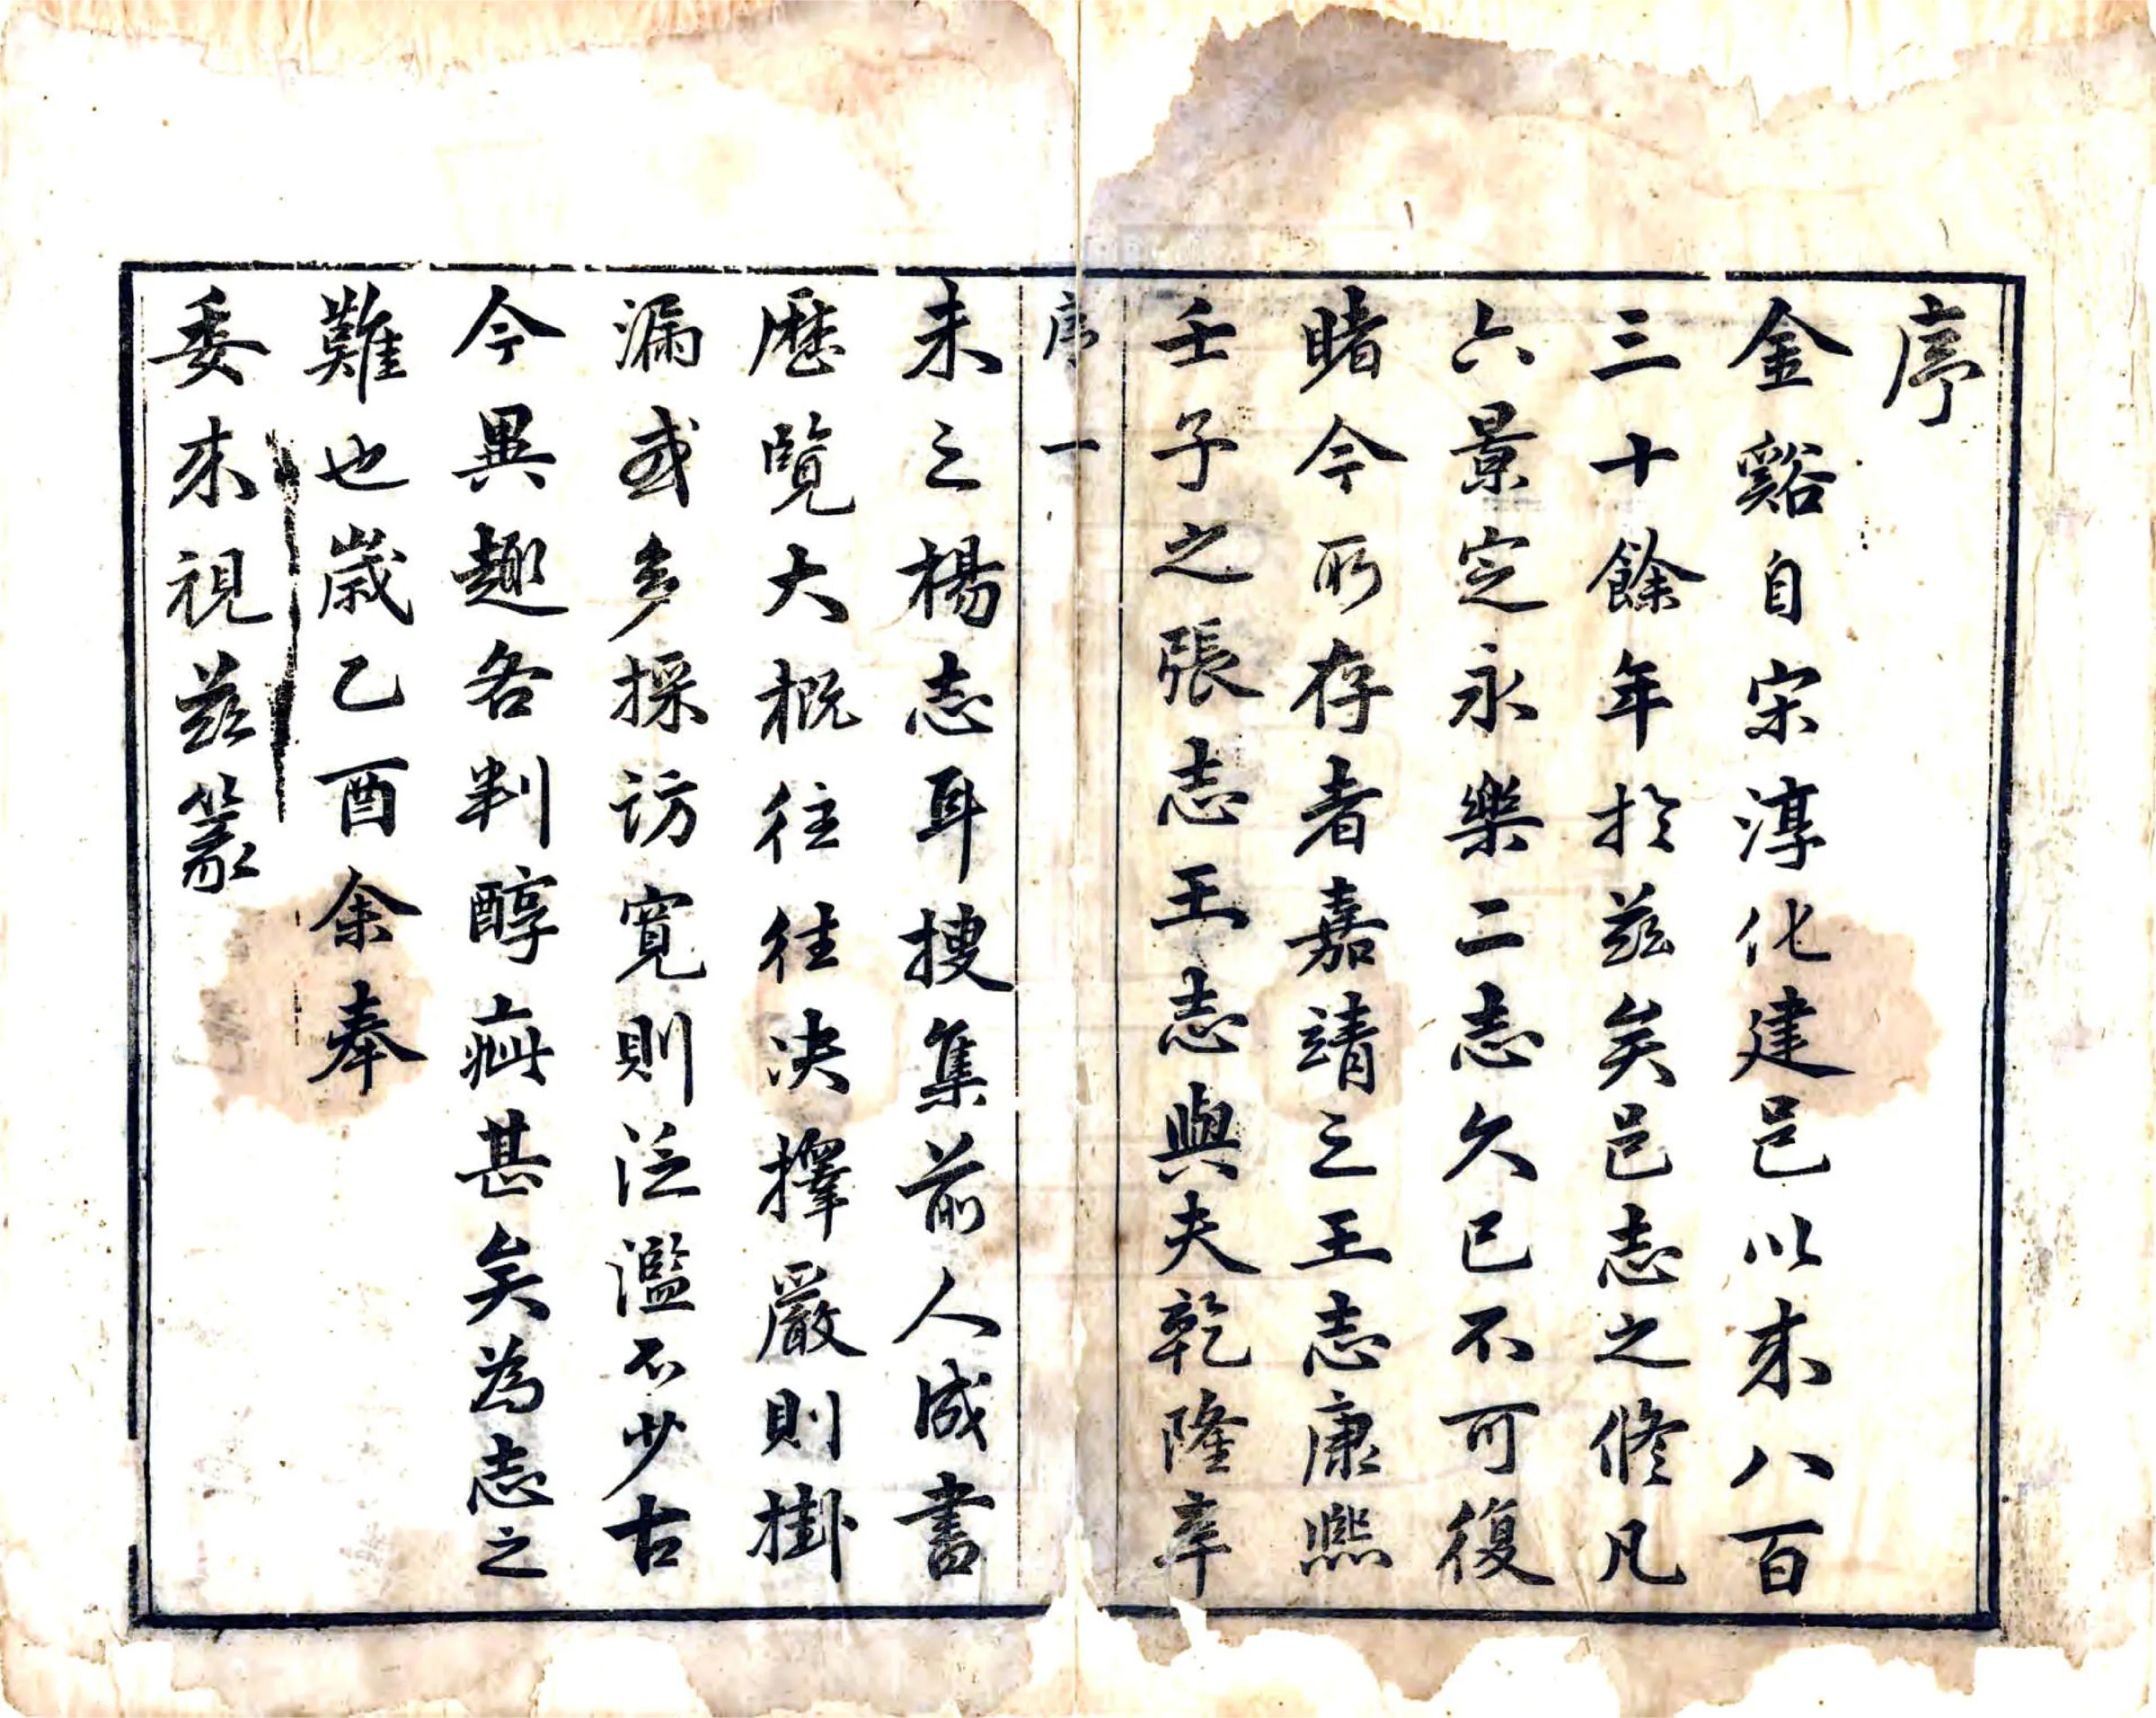 序
金谿自宋淳化建邑以来八百
三十餘年於兹矣邑志之修凡
六景定永樂二志久已不可復
睹今所存者嘉靖之王志康熙
壬子之張志王志與夫乾隆辛
序 一
未之楊志耳搜集前人成書
歷覽大概往往決擇嚴則掛
漏或多採訪寬則泛濫不少古
今異趣各判醇疵甚矣為志之
難也歲乙酉余奉
委来視兹篆